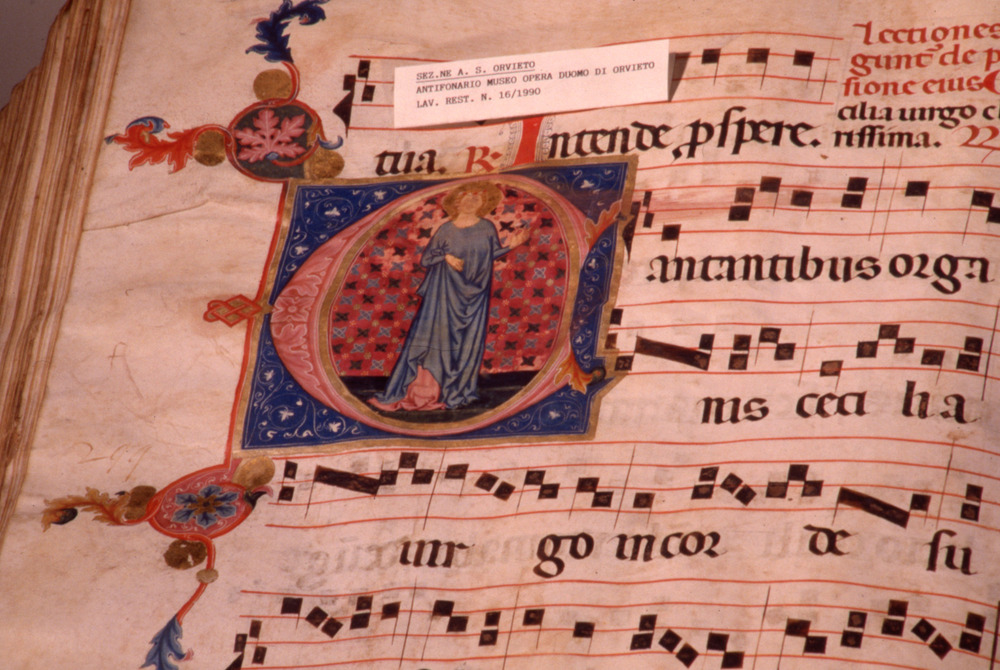 SEZ.NE A. S. ORVIETO
ANTIFONARIO MUSEO OPERA DUOMO DI ORVIETO
LAV. REST. N. 16/1990
Lectiones
gunt̃ de p
sione eius
cilia uirgo c
tua. R. Intende, ꝓspere. rissima.
antantibus orga
nis ceci lia
uir go in cor de su